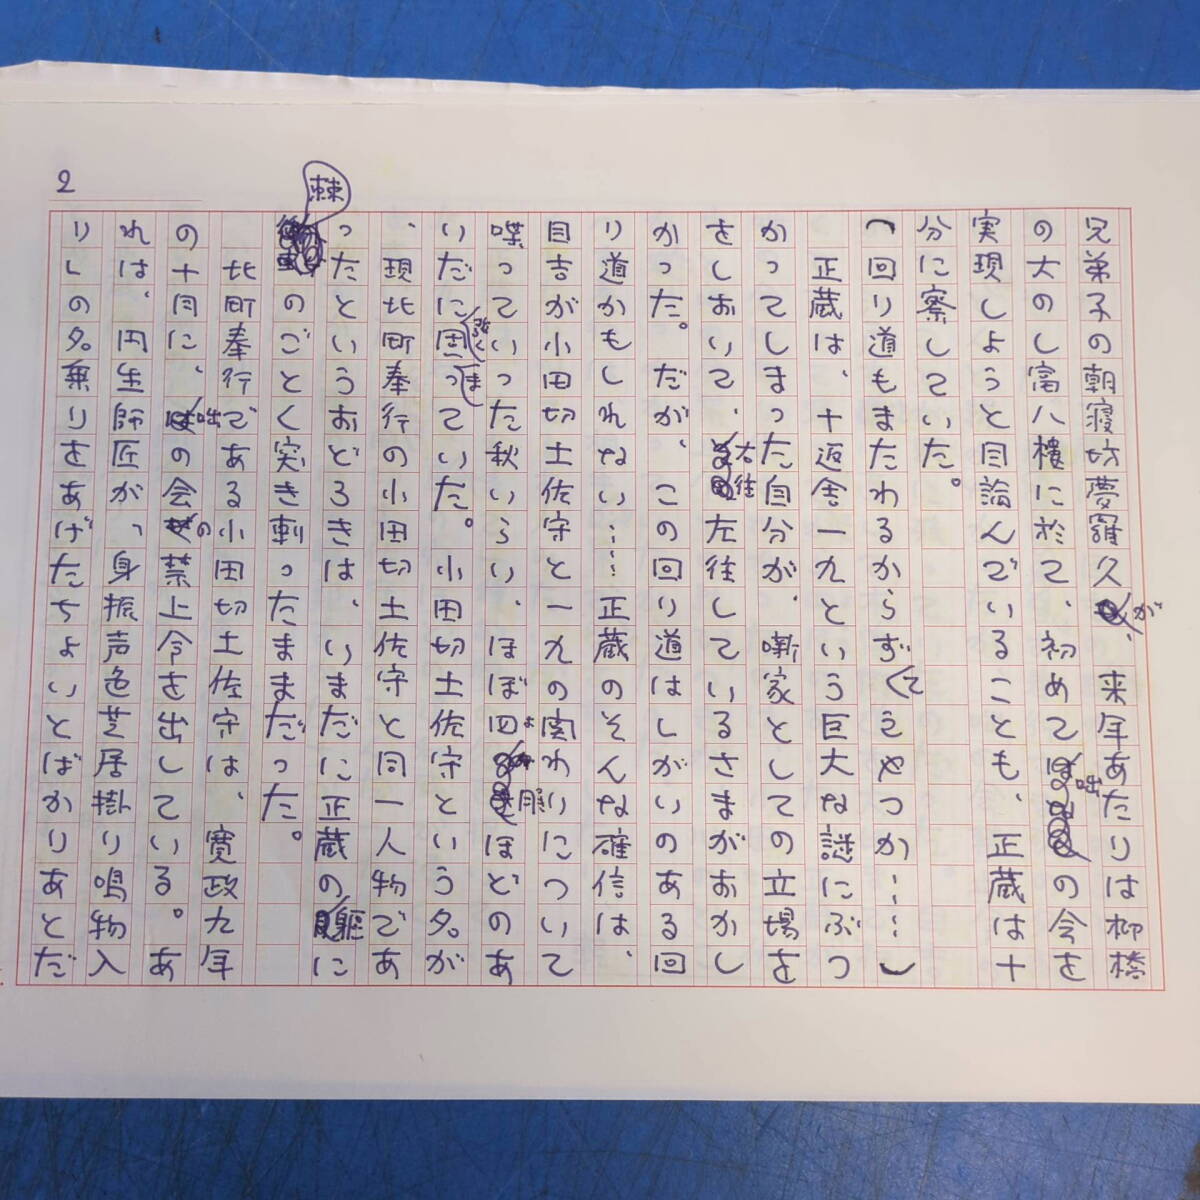 2
兄弟子の朝寝坊夢羅久が、来年あたりは柳橋
の大のし富八樓に於て、初めて咄の会を
実現しようと目論んでいることも、正蔵は十
分に察していた。
(回り道もまたわるからずくてえやつか……)
正蔵は、十返舎一九という巨大な謎にぶつ
かってしまった自分が、噺家としての立場を
をしおいて、右往左往しているさまがおかし
かった。だが、この回り道はしがいのある回
り道かもしれない……正蔵のそんな確信は、
目吉が小田切土佐守と一九の関わりについて
喋っていった秋いらい、ほぼ四よ月ほどのあ
いだに強く固まっていた。小田切土佐守という夕が
、現北町奉行の小田切土佐守と同一人物であ
ったというおどろきは、いまだに正蔵の軀に
棘のごとく突き刺ったままだった。
北町奉行である小田切土佐守は、寛政九年
の十月に、咄の会の禁止令を出している。あ
れは、円生師匠が、身振声色芝居掛り鳴物入
りしの夕。乗りをあげたちょいとばかりあとだ